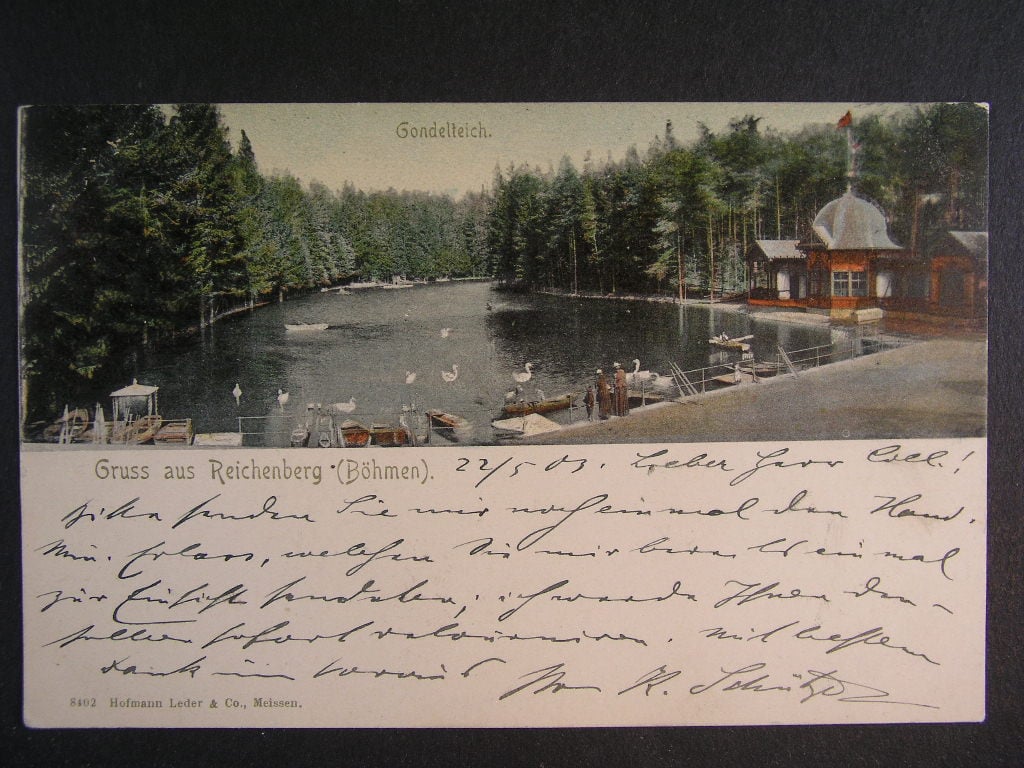 Gondelteich.
Gruss aus Reichenberg (Böhmen). 22/5 03. Lieber Herr Coll.!
Bitte senden Sie mir noch einmal den Hand.
Min. Erlass, welchen Sie mir bereits einmal
zur Einsicht sendeten; ich werde Ihnen den-
selben sofort retournieren. Mit bestem
Dank im voraus K. Schütze
8402 Hofmann Leder & Co., Meissen.